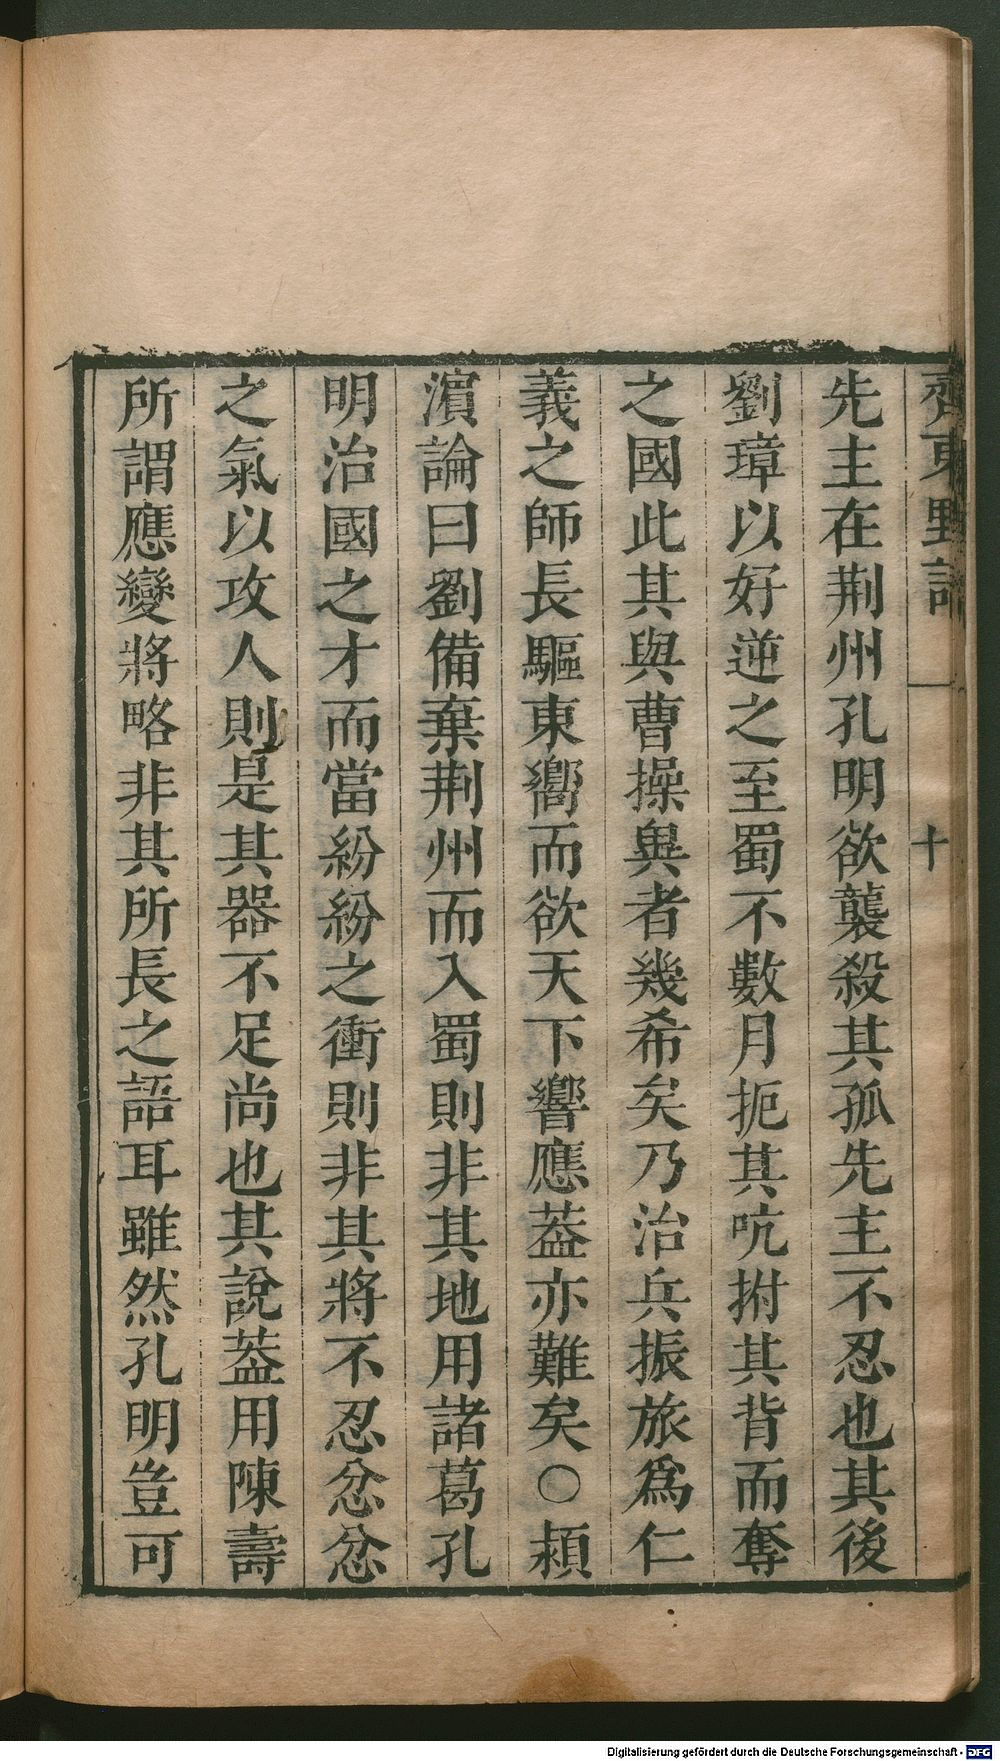 齊東野語
十
先主在荆州孔明欲襲殺其孤先主不忍也其後
劉璋以好逆之至蜀不數月扼其吭拊其背而奪
之國此其與曹操異者幾希矣乃治兵振旅爲仁
義之師長驅東嚮而欲天下響應葢亦難矣○頴
濵論曰劉備棄荆州而入蜀則非其地用諸葛孔
明治國之才而當紛紛之衝則非其將不忍忿忿
之氣以攻人則是其器不足尚也其說葢用陳壽
所謂應變將略非其所長之語耳雖然孔明豈可
Digitalisierung gefördert durch die Deutsche Forschungsgemeinschaft - DFG